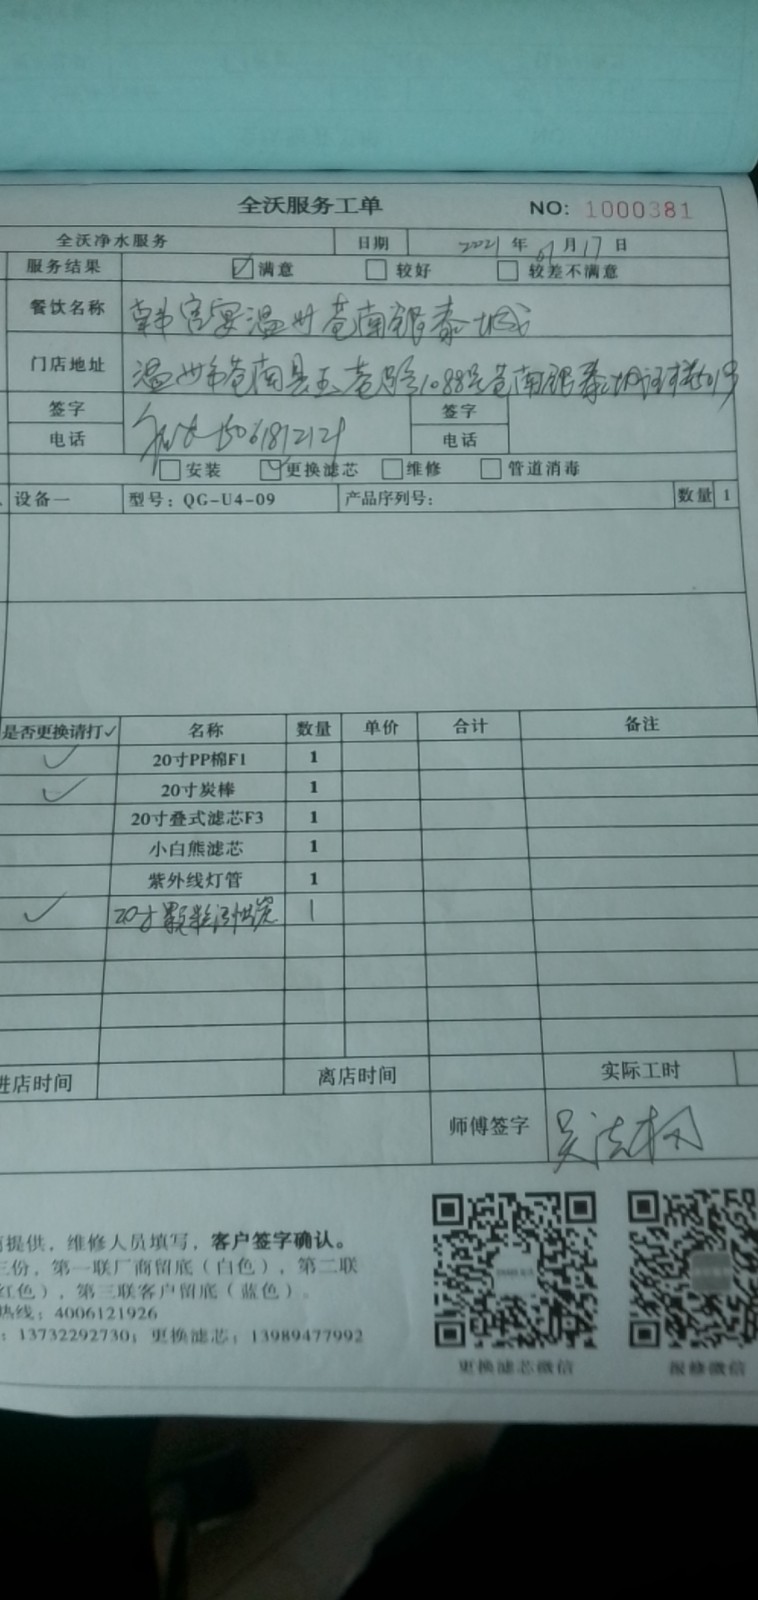 全沃服务工单 NO: 1000381
全沃净水服务 日期 2021 年 01 月 17 日
服务结果 ☑ 满意 □ 较好 □ 较差不满意
餐饮名称 韩宫宴温州苍南银泰城
门店地址 温州市苍南县玉苍路1088号苍南银泰城
签字 签字
电话 15061812121 电话
□ 安装 ☑ 更换滤芯 □ 维修 □ 管道消毒
设备一 型号: QG-U4-09 产品序列号: 数量 1
是否更换请打✓ 名称 数量 单价 合计 备注
✓ 20寸PP棉F1 1
✓ 20寸炭棒 1
20寸叠式滤芯F3 1
小白熊滤芯 1
紫外线灯管 1
✓ 20寸颗粒活性炭 1
进店时间 离店时间 实际工时
师傅签字
提供，维修人员填写，客户签字确认。
三份，第一联厂商留底（白色），第二联
红色），第三联客户留底（蓝色）。
热线: 4006121926
: 13732292730; 更换滤芯: 13989477992
更换滤芯微信 报修微信